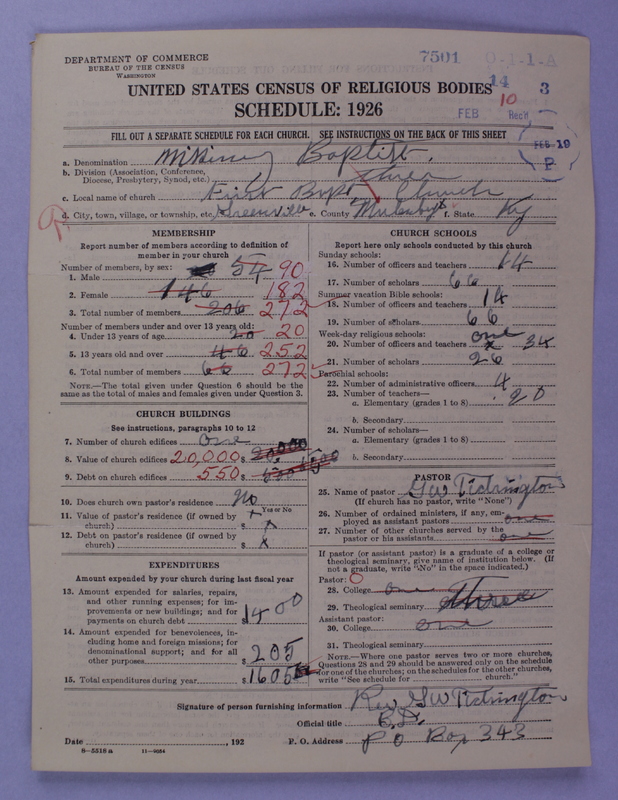 DEPARTMENT OF COMMERCE
BUREAU OF THE CENSUS
WASHINGTON
7501 O-1-1-A
14 3
UNITED STATES CENSUS OF RELIGIOUS BODIES
SCHEDULE: 1926
FEB 10 Rec'd
FILL OUT A SEPARATE SCHEDULE FOR EACH CHURCH. SEE INSTRUCTIONS ON THE BACK OF THIS SHEET
FEB 19
P
a. Denomination Baptist.
b. Division (Association, Conference,
Diocese, Presbytery, Synod, etc.)
c. Local name of church First Bapt Church
d. City, town, village, or township, etc. Greenville e. County f. State Ky
MEMBERSHIP
Report number of members according to definition of
member in your church
Number of members, by sex:
1. Male 54 90
2. Female 146 182
3. Total number of members 206 272
Number of members under and over 13 years old:
4. Under 13 years of age 20 20
5. 13 years old and over 46 252
6. Total number of members 66 272
NOTE.—The total given under Question 6 should be the
same as the total of males and females given under Question 3.
CHURCH BUILDINGS
See instructions, paragraphs 10 to 12
7. Number of church edifices one
8. Value of church edifices 20,000 $ 20,000
9. Debt on church edifices 550 $
10. Does church own pastor's residence? No
Yes or No
11. Value of pastor's residence (if owned by
church) $ x
12. Debt on pastor's residence (if owned by
church) $ x
EXPENDITURES
Amount expended by your church during last fiscal year
13. Amount expended for salaries, repairs,
and other running expenses; for im-
provements or new buildings; and for
payments on church debt $ 1400
14. Amount expended for benevolences, in-
cluding home and foreign missions; for
denominational support; and for all
other purposes $ 205
15. Total expenditures during year $ 1605
CHURCH SCHOOLS
Report here only schools conducted by this church
Sunday schools:
16. Number of officers and teachers 14
17. Number of scholars 66
Summer vacation Bible schools:
18. Number of officers and teachers 14
19. Number of scholars 66
Week-day religious schools:
20. Number of officers and teachers one 2 34
21. Number of scholars 26
Parochial schools:
22. Number of administrative officers 4
23. Number of teachers—
a. Elementary (grades 1 to 8) 20
b. Secondary
24. Number of scholars—
a. Elementary (grades 1 to 8)
b. Secondary
PASTOR
25. Name of pastor G W Tichrington
(If church has no pastor, write "None")
26. Number of ordained ministers, if any, em-
ployed as assistant pastors one
27. Number of other churches served by the
pastor or his assistants one
If pastor (or assistant pastor) is a graduate of a college or
theological seminary, give name of institution below. (If
not a graduate, write "No" in the space indicated.)
Pastor: O
28. College one
29. Theological seminary Three
Assistant pastor:
30. College one
31. Theological seminary
NOTE.—Where one pastor serves two or more churches,
Questions 28 and 29 should be answered only on the schedule
for one of the churches; on the schedules for the other churches,
write "See schedule for church."
Signature of person furnishing information Rev G W Tichrington
Official title B.D.
Date , 192 P. O. Address P O Box 343
8—5318a 11—9054